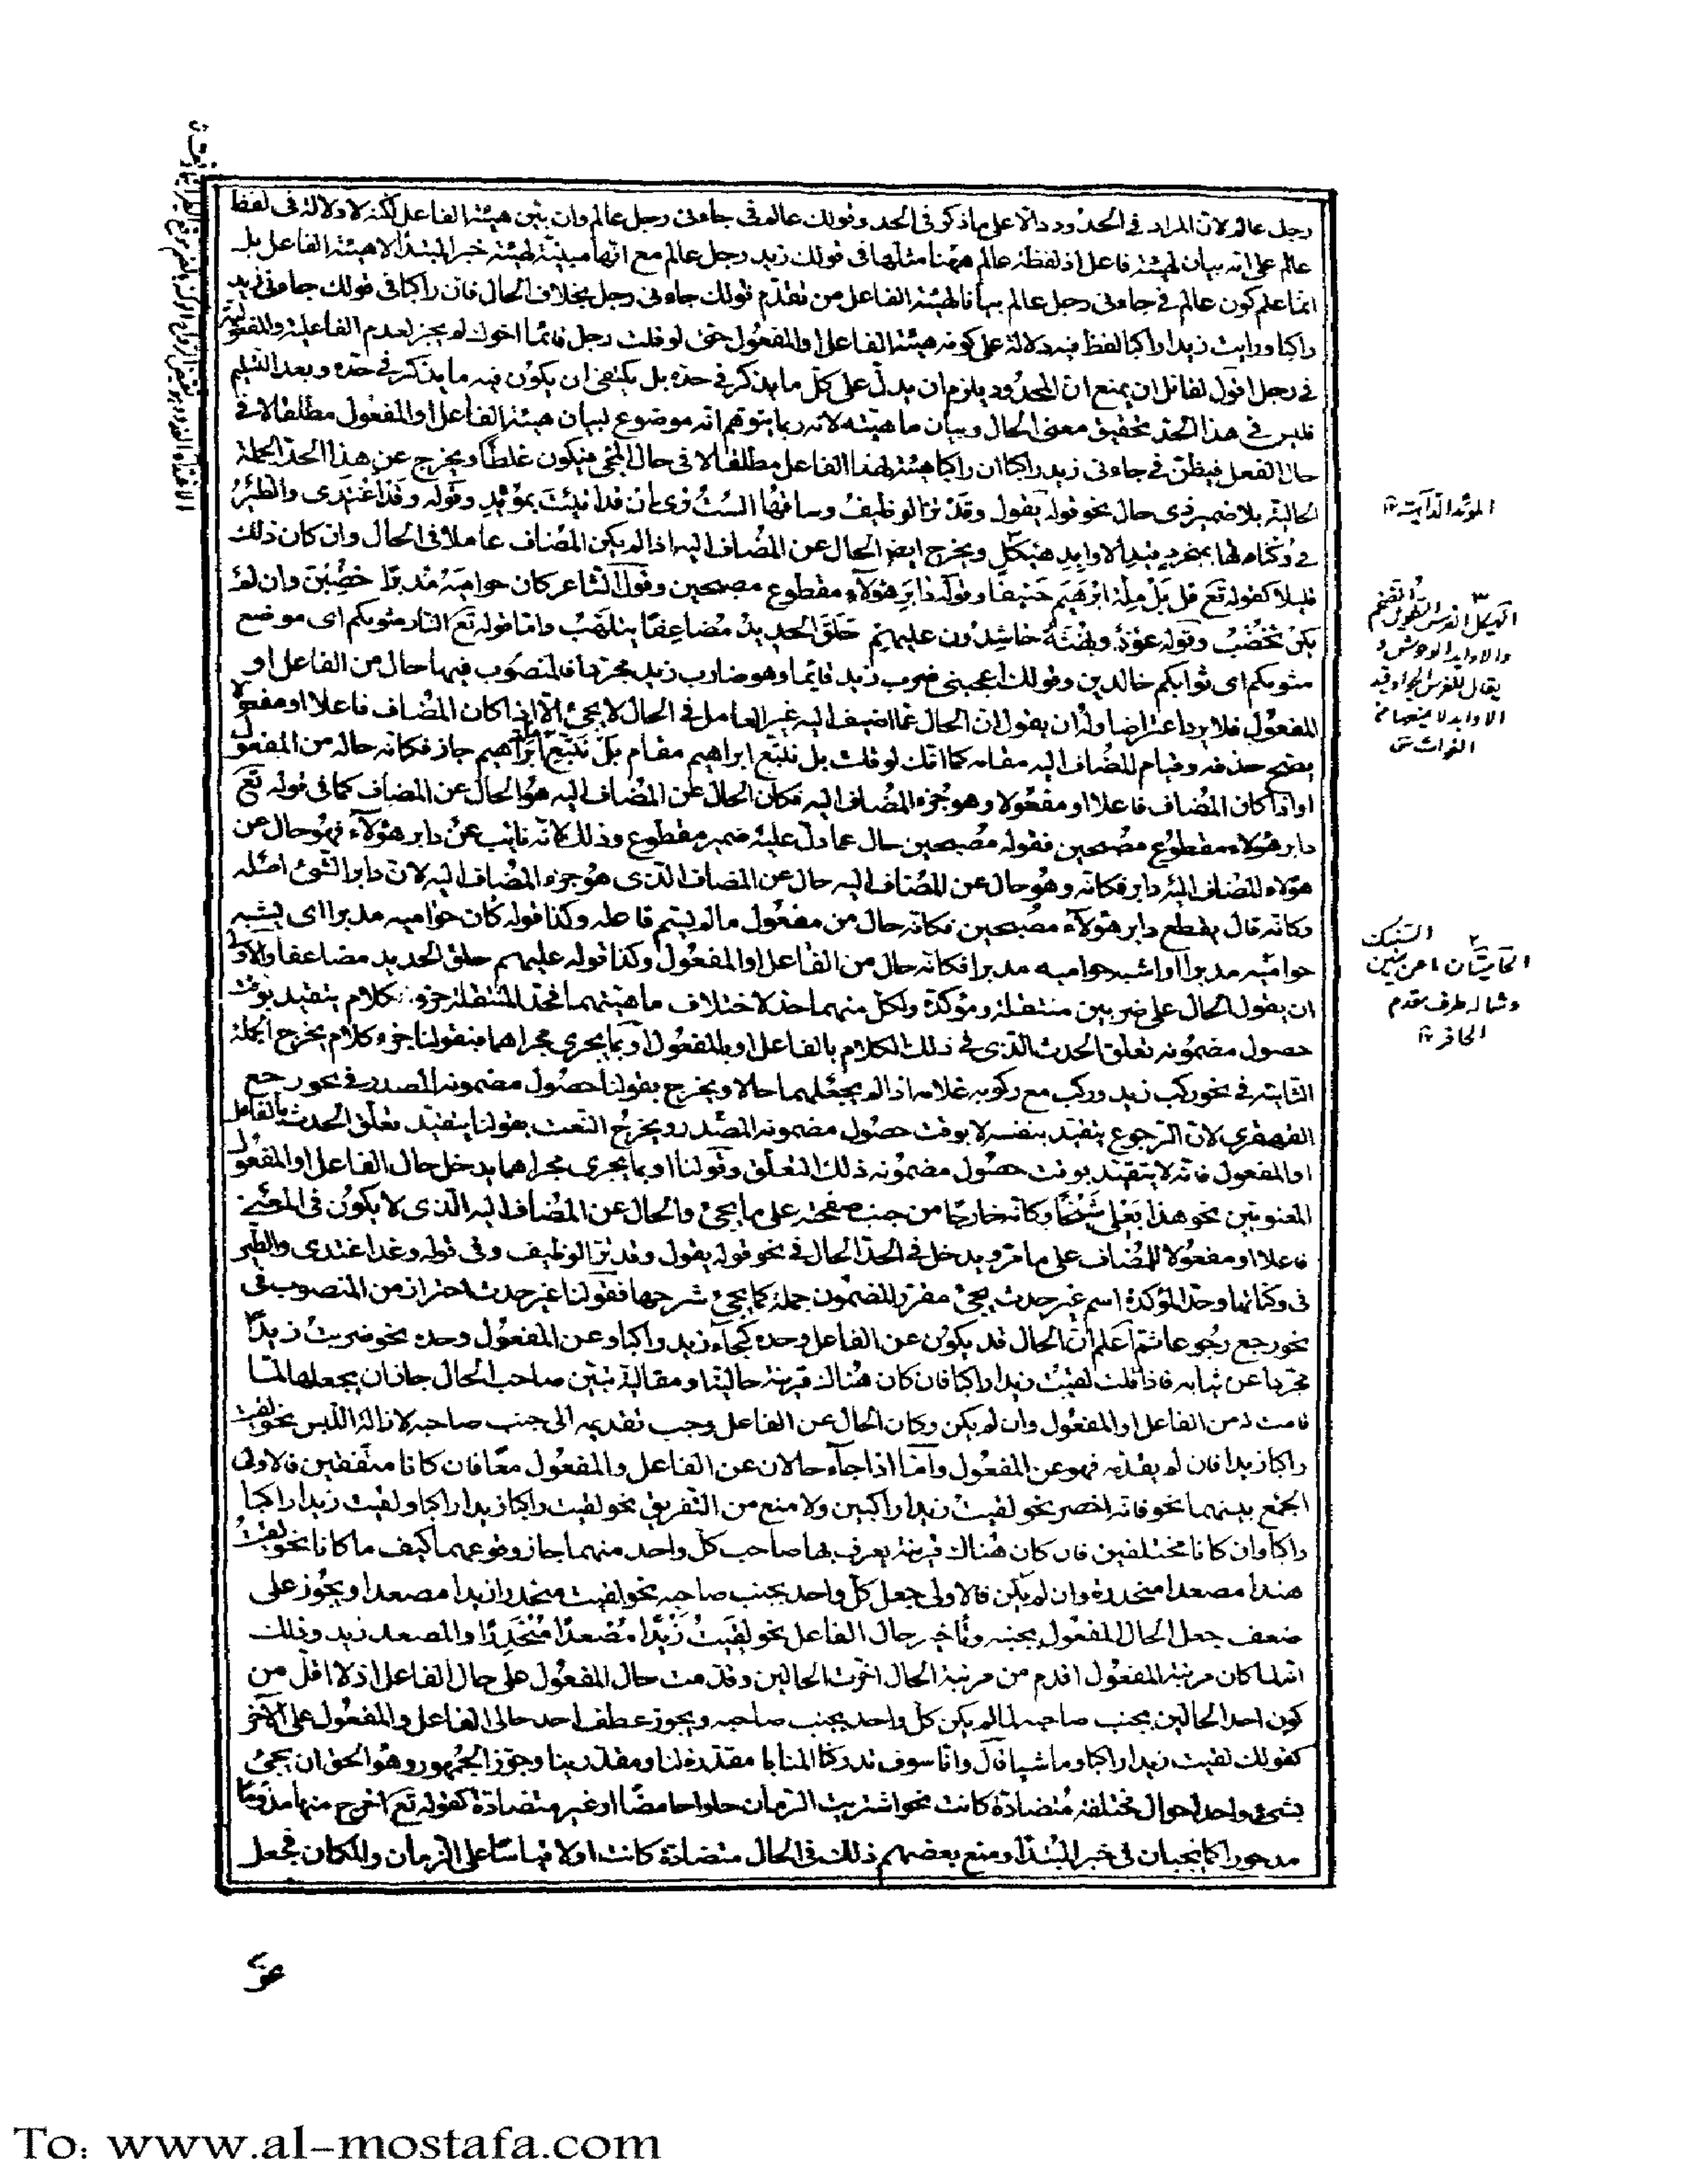 رجل عالم لان المراد في الحدود دالا على ما ذكر فى الحد وقولك عالم فى جاءنى رجل عالم وان بين هيئة الفاعل لكنه لا دلالة فى لفظ
عالم على انه بيان لهيئة فاعل اذ لفظة عالم ههنا مثلها فى قولك زيد رجل عالم مع انها مبينة لهيئة خبر المبتدأ لا هيئة الفاعل بل
انما علم كون عالم فى جاءنى رجل عالم بيانا لهيئة الفاعل من تقدم قولك جاءنى رجل بخلاف الحال فان راكبا فى قولك جاءنى زيد
راكبا ورايت زيدا راكبا لفظ فيه دلالة على كونه هيئة الفاعل او المفعول حتى لو قلت رجل قائما اخوك لم يجز لعدم الفاعلية والمفعولية
فى رجل اقول لقائل ان يمنع ان المحدود يلزم ان يدل على كل ما يذكر فى حده بل يكفى ان يكون فيه ما يذكر فى حده وبعد التسليم
فليس فى هذا الحد تحقيق معنى الحال وبيان ماهيته لانه ربما يتوهم انه موضوع لبيان هيئة الفاعل او المفعول مطلقا لا فى
حال الفعل فيظن فى جاءنى زيد راكبا ان راكبا هيئة لهذا الفاعل مطلقا لا فى حال المجئ فيكون غلطا ويخرج عن هذا الحد الجملة
الحالية بلا ضمير ذى حال نحو قوله يقول وقد تر الوظيف وساقها الست ترى ان قد اتيت بمؤيد وقوله وقد اغتدى والطير
فى وكناتها بمنجرد قيد الاوابد هيكل ويخرج ايضا الحال عن المضاف اليه اذا لم يكن المضاف عاملا فى الحال وان كان ذلك
قليلا كقوله تع قل بل ملة ابرهيم حنيفا وقوله دابر هؤلاء مقطوع مصبحين وقول الشاعر كان حواميه مدبرا خضبن وان لم
يكن تخضب وقوله عوذ وبهثة حاشدون عليهم حلق الحديد مضاعفا يتلهب واما قوله تع النار مثويكم اى موضع
مثويكم اى ثوايكم خالدين وقولك اعجبنى ضرب زيد قائما وهو ضارب زيد مجردا فالمنصوب فيها حال من الفاعل او
المفعول فلا يرد اعتراضا وله ان يقول ان الحال عما اضيف اليه غير العامل فى الحال لا يجئ الا اذا كان المضاف فاعلا او مفعولا
يصح حذفه وقيام المضاف اليه مقامه كما انك لو قلت بل نتبع ابراهيم مقام بل نتبع ملة ابراهيم جاز فكانه حال من المفعول
او اذا كان المضاف فاعلا او مفعولا وهو جزء المضاف اليه فكان الحال عن المضاف اليه هو الحال عن المضاف كما فى قوله تع
دابر هؤلاء مقطوع مصبحين فقوله مصبحين حال عما دل عليه ضمير مقطوع وذلك لانه نائب عن دابر هؤلاء فهو حال عن
هؤلاء المضاف اليه دابر فكانه وهو حال عن المضاف اليه حال عن المضاف الذى هو جزء المضاف اليه لان دابر الشئ اصله
وكانه قال يقطع دابر هؤلاء مصبحين فكانه حال من مفعول ما لم يسم فاعله وكذا قوله كان حواميه مدبرا اى يشبه
حواميه مدبرا او اشبه حواميه مدبرا فكانه حال من الفاعل او المفعول وكذا قوله عليهم حلق الحديد مضاعفا والاولى
ان يقول الحال على ضربين منتقلة ومؤكدة ولكل منهما حد لاختلاف ماهيتهما فحد المنتقلة جزء كلام يتقيد بوقت
حصول مضمونه تعلق الحدث الذى فى ذلك الكلام بالفاعل او بالمفعول او بما يجرى مجراهما فبقولنا جزء كلام يخرج الجملة
الثانية فى نحو ركب زيد وركب مع ركوبه غلامه اذا لم يجعلهما حالا ويخرج بقولنا حصول مضمونه المصدر فى نحو رجع
القهقرى لان الرجوع يتقيد بنفسه لا بوقت حصول مضمونه المصدر ويخرج النعت بقولنا يتقيد تعلق الحدث بالفاعل
او المفعول فانه لا يتقيد بوقت حصول مضمونه ذلك التعلق وقولنا او بما يجرى مجراهما يدخل حال الفاعل او المفعول
المعنويين نحو هذا بعلى شيخا وكانه خارجا من جنب صفحته على ما يجئ والحال عن المضاف اليه الذى لا يكون فى المعنى
فاعلا او مفعولا للمضاف على ما مر ويدخل فى الحد الحال فى نحو قوله يقول وقد تر الوظيف وفى قوله وقد اغتدى والطير
فى وكناتها وحد المؤكدة اسم غير حدث يجئ مقررا لمضمون جملة كما يجئ شرحها فقولنا غير حدث احتراز من المنصوب فى
نحو رجع رجوعا ثم اعلم ان الحال قد يكون عن الفاعل وحده كجاء زيد راكبا وعن المفعول وحده نحو ضربت زيدا
مجردا عن ثيابه فاذا قلت لقيت زيدا راكبا فان كان هناك قرينة حالية او مقالية تبين صاحب الحال جاز ان يجعلها لما
قامت له من الفاعل او المفعول وان لم يكن وكان الحال عن الفاعل وجب تقديمه الى جنب صاحبه لازالة اللبس نحو لقيت
راكبا زيدا فان لم يقدمه فهو عن المفعول واما اذا جاء حالان عن الفاعل والمفعول معا فان كانا متفقين فالاولى
الجمع بينهما نحو فانه اخصر نحو لقيت زيدا راكبين ولا منع من التفريق نحو لقيت راكبا زيدا راكبا ولقيت زيدا راكبا
راكبا وان كانا مختلفين فان كان هناك قرينة يعرف بها صاحب كل واحد منهما جاز وقوعهما كيف ما كانا نحو لقيت
هندا مصعدا منحدرة وان لم يكن فالاولى جعل كل واحد بجنب صاحبه نحو لقيت منحدرا زيدا مصعدا ويجوز على
ضعف جعل الحال المفعول بجنبه وتأخير حال الفاعل نحو لقيت زيدا مصعدا منحدرا والمصعد زيد وذلك
انه لما كان مرتبة المفعول اقدم من مرتبة الحال اخرت الحالين وقدمت حال المفعول على حال الفاعل اذ لا اقل من
كون احد الحالين بجنب صاحبه لما لم يكن كل واحد بجنب صاحبه ويجوز عطف احد حالى الفاعل والمفعول على الآخر
كقولك لقيت زيدا راكبا وماشيا قال وانا سوف تدركنا المنايا مقدرة لنا ومقدرينا وجوز الجمهور وهو الحق ان يجئ
بشئ واحد احوال مختلفة متضادة كانت نحو اشتريت الرمان حلوا حامضا او غير متضادة كقوله تع اخرج منها مذؤما
مدحورا كما يجيئان فى خبر المبتدأ ومنع بعضهم ذلك فى الحال متضادة كانت او لا قياسا على الزمان والمكان فجعل
المؤيد الداهية
٣
الهيكل الفرس الطويل الضخم
والاوابد الوحوش و
يقال للفرس الجواد قيد
الاوابد لا منعها من
الفوات
٢
السنبك
الحاميتان ما عن يمين
وشماله طرف مقدم
الحافر
To: www.al-mostafa.com